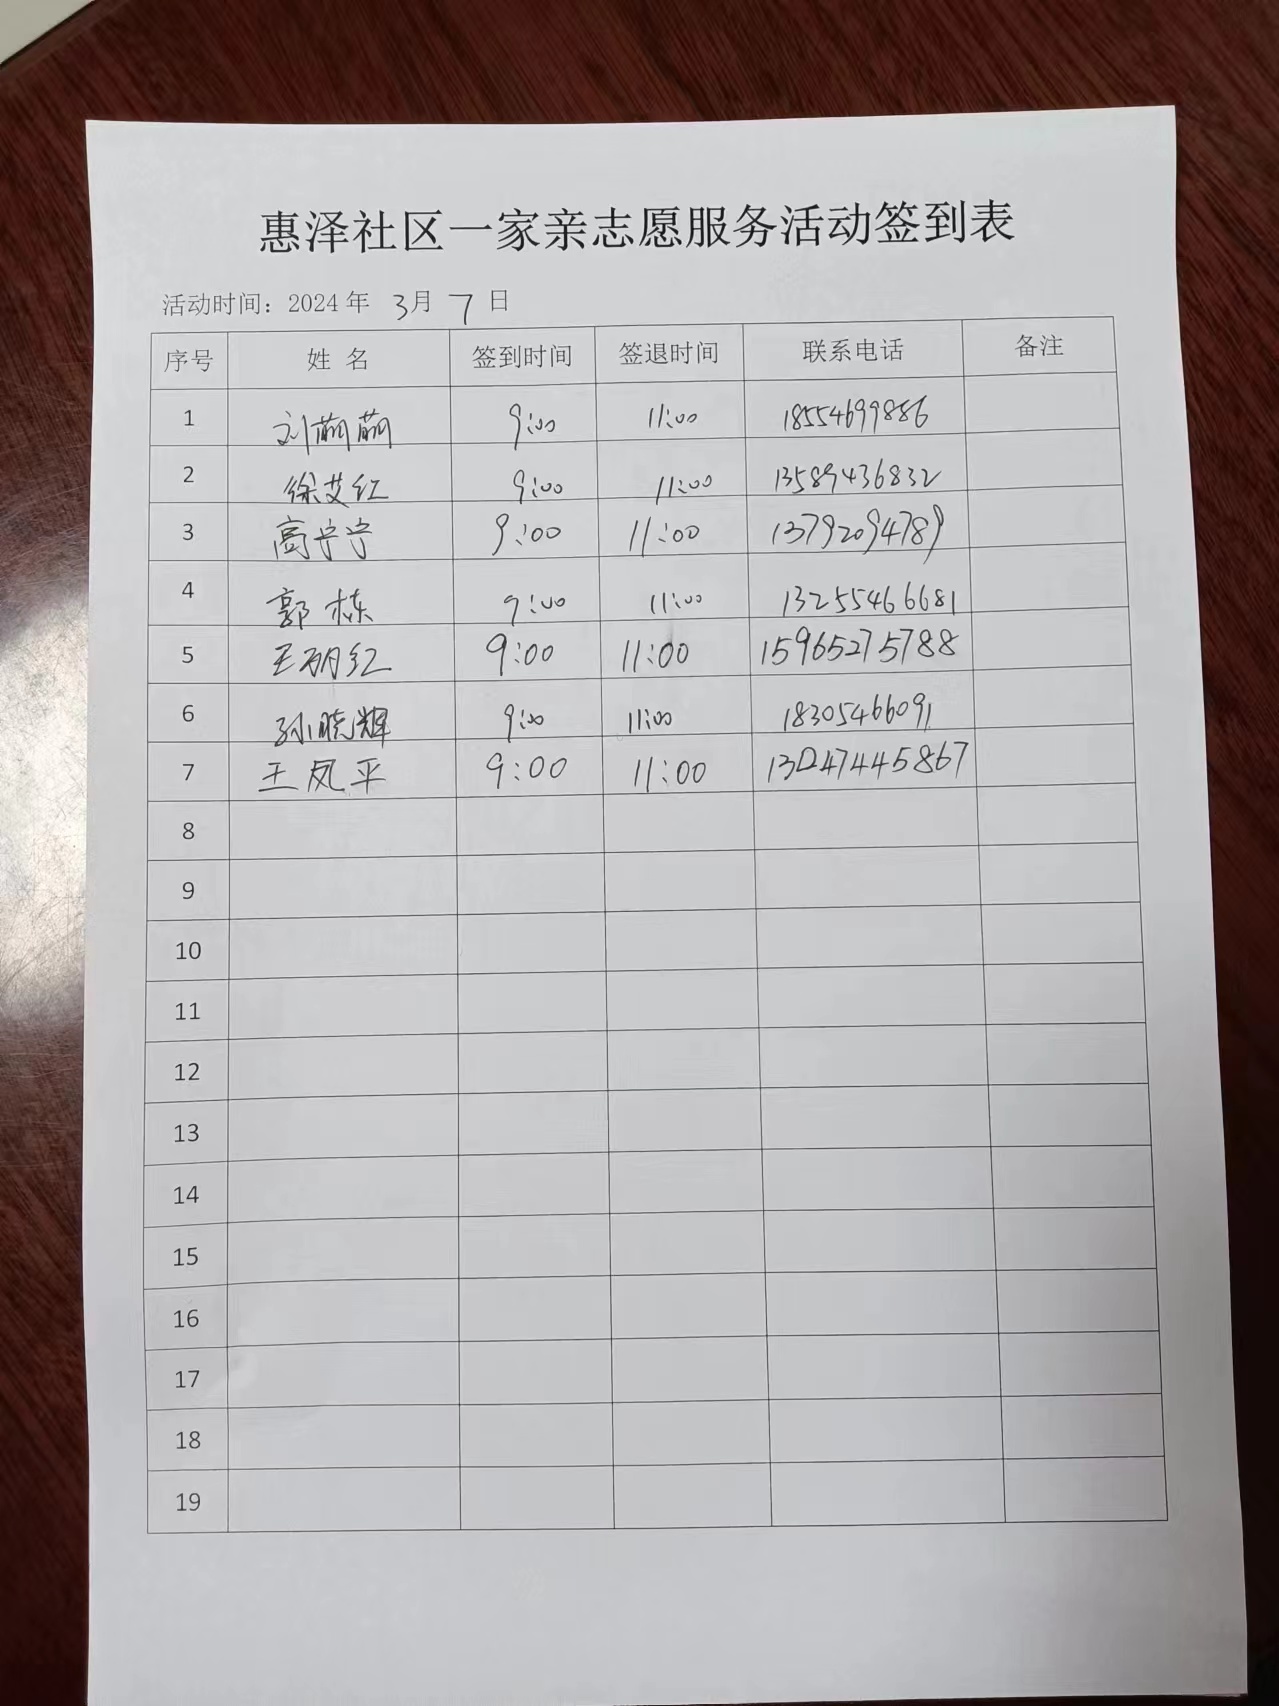 惠泽社区一家亲志愿服务活动签到表
活动时间：2024年 3月 7 日
序号 姓 名 签到时间 签退时间 联系电话 备注
1 刘萌萌 9:00 11:00 18554699886
2 徐艾红 9:00 11:00 13589436832
3 高宁宁 9:00 11:00 13792094789
4 郭栋 9:00 11:00 13255466681
5 王丽红 9:00 11:00 15965275788
6 孙晓辉 9:00 11:00 18305466091
7 王凤平 9:00 11:00
8
9
10
11
12
13
14
15
16
17
18
19